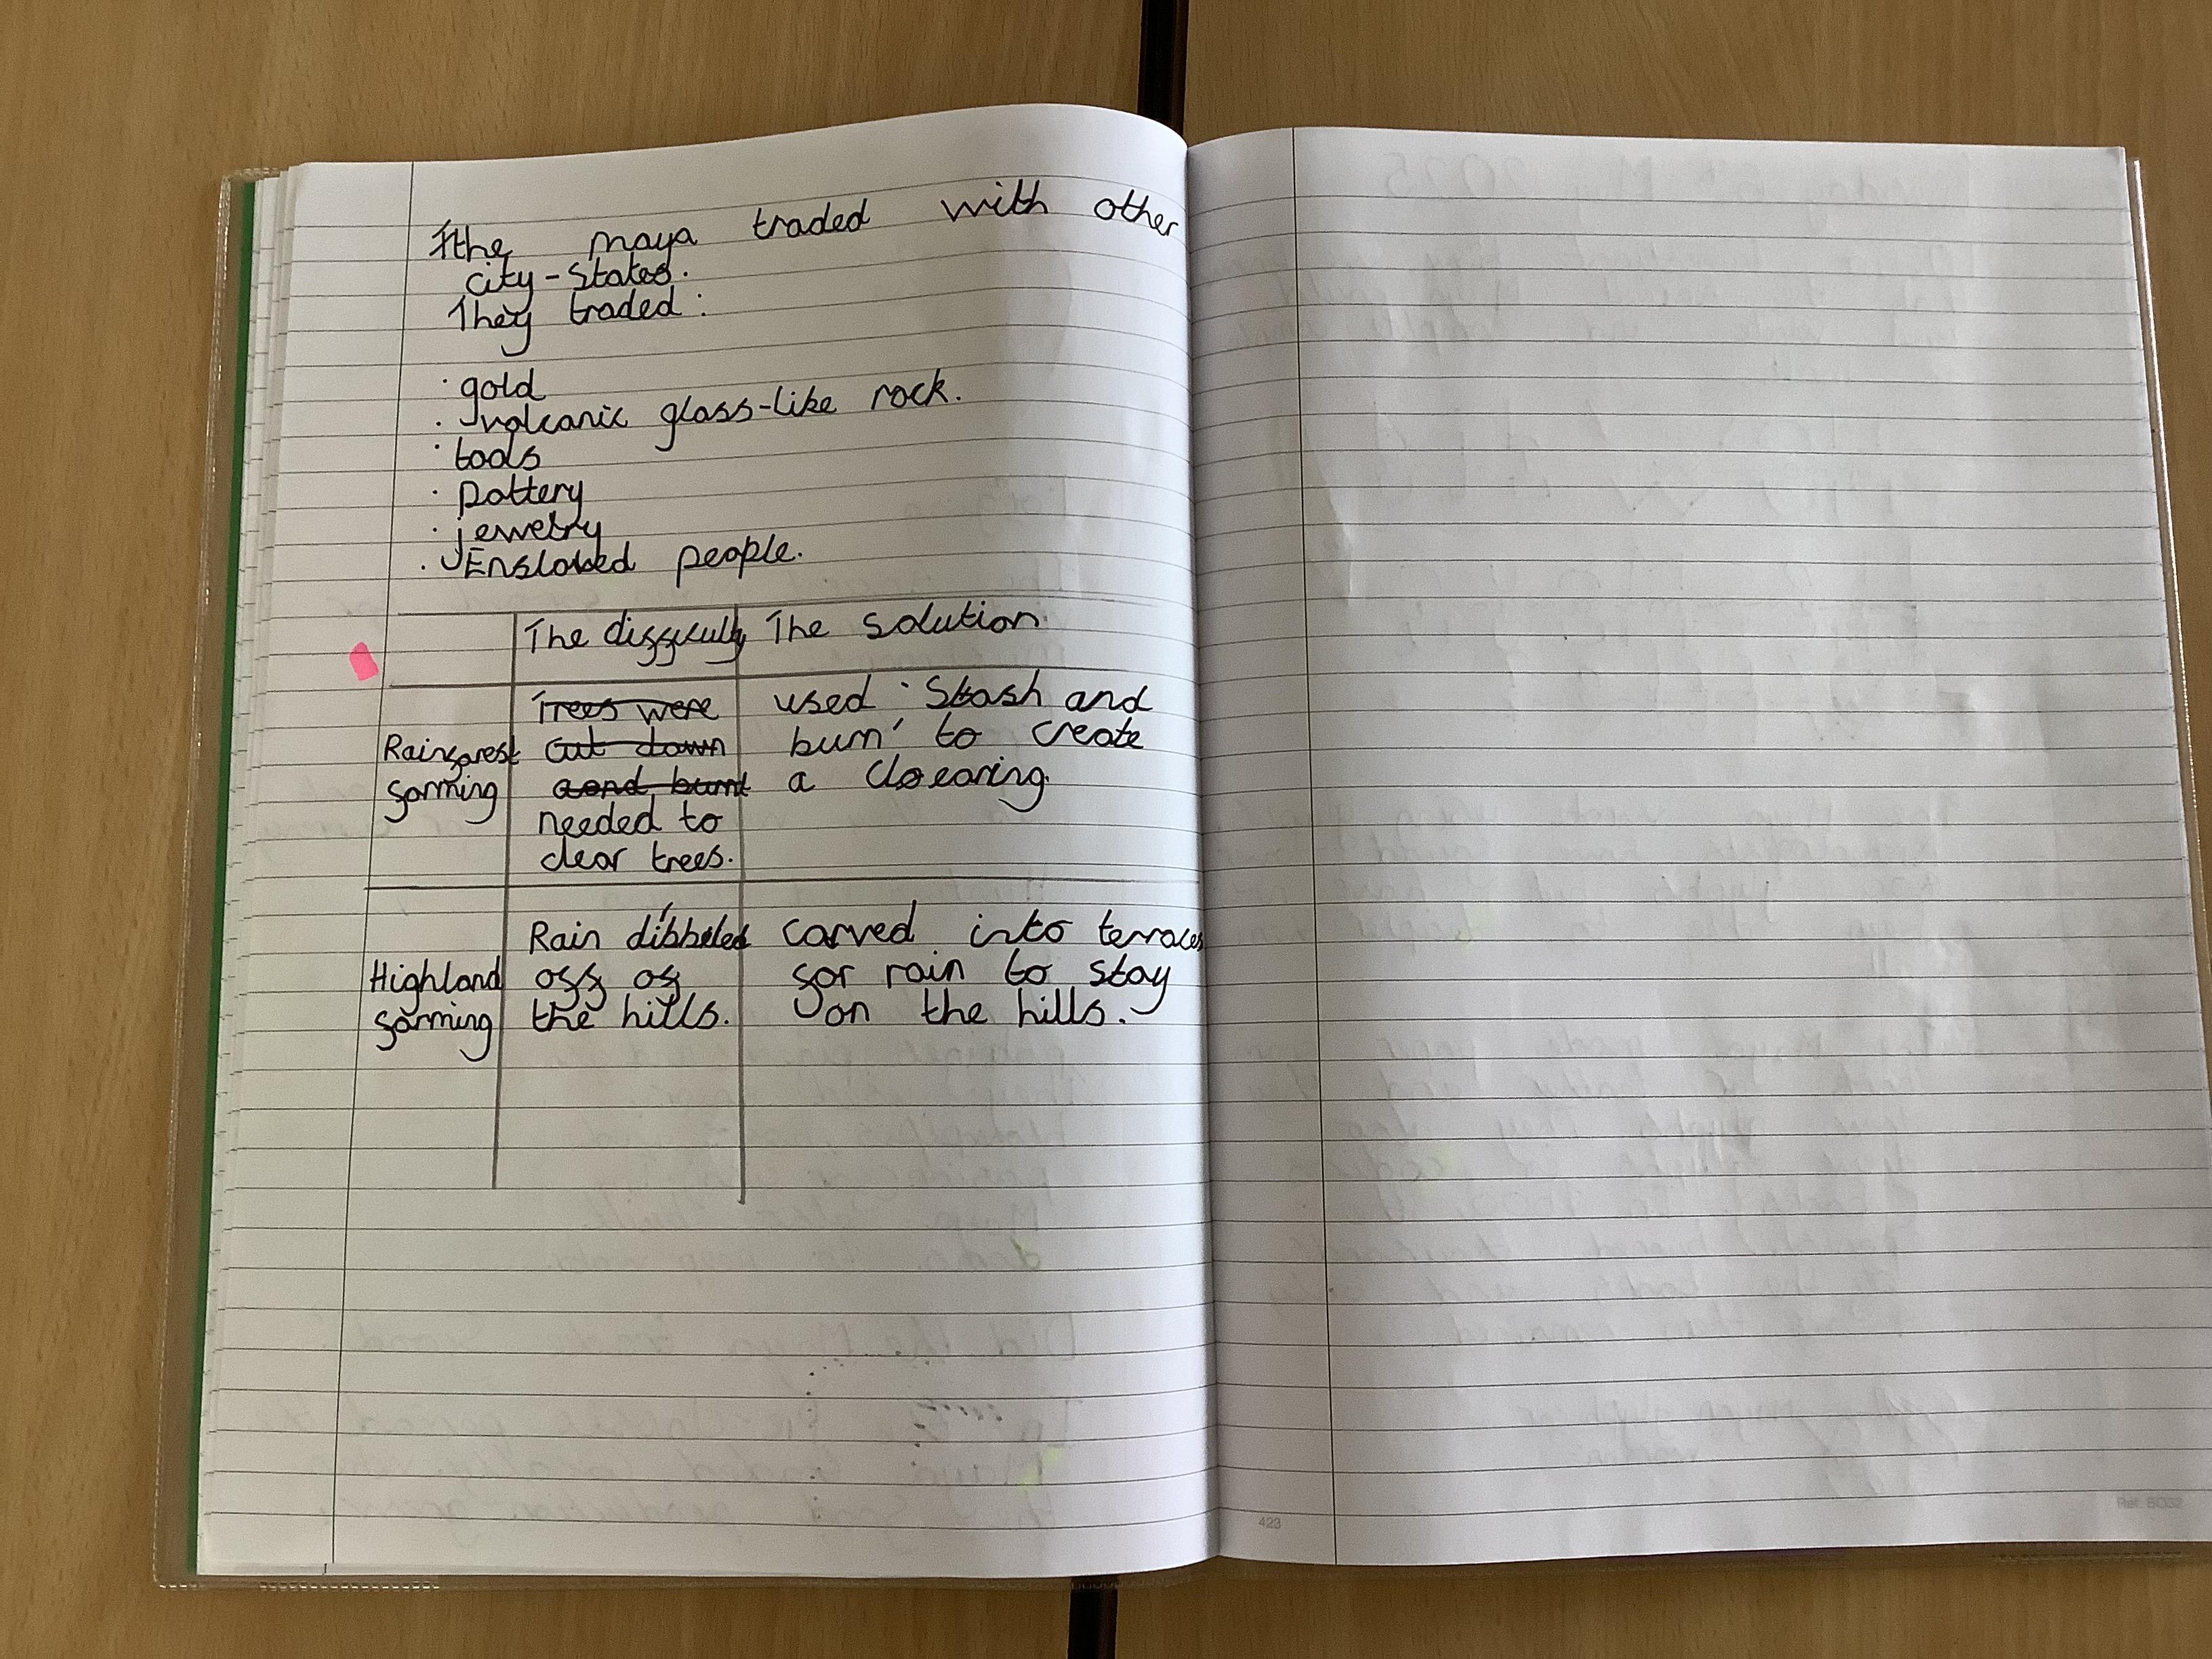 the maya traded with other
city-states.
They traded:
· gold
· volcanic glass-like rock.
· tools
· pottery
· jewelry
· Enslaved people.
The difficulty The solution
Trees were used 'Slash and
Rainforest cut down burn' to create
farming and burnt a clearing.
needed to
clear trees.
Rain dibbeled carved into terraces
Highland off of for rain to stay
farming the hills. on the hills.
423
Ref. BO32